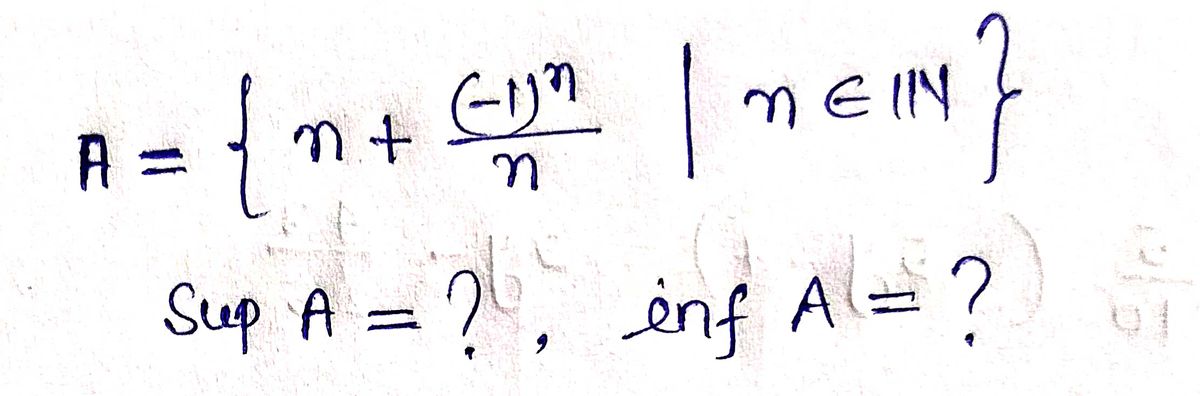 A = { n + (-1)^n / n | n ∈ ℕ }
Sup A = ?, inf A = ?